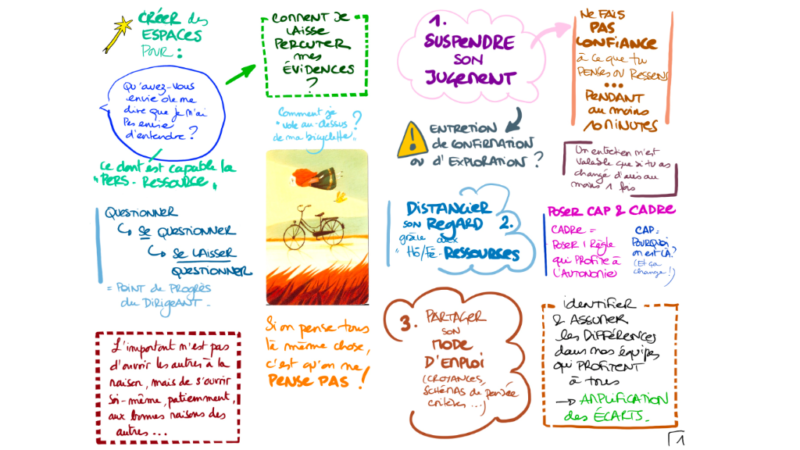 CRÉER des
ESPACES
POUR :
Qu'avez-vous
envie de me
dire que je n'ai
Pas envie
d'entendre ?
ce dont est capable la
"PERS-RESSOURCE"
QUESTIONNER
SE QUESTIONNER
SE LAISSER
QUESTIONNER
= POINT de PROGRÈS
du DIRIGEANT.
L'important n'est pas
d'ouvrir les autres à la
raison, mais de s'ouvrir
soi-même, patiemment,
aux bonnes raisons des
autres...
COMMENT JE
LAISSE
PERCUTER
mes
ÉVIDENCES
?
Comment je
"vole au-dessus
de ma bicyclette" ?
Si on pense tous
la même chose,
c'est qu'on ne
PENSE PAS !
1.
SUSPENDRE
SON
JUGEMENT
ENTRETIEN
de CONFIRMATION
ou d'EXPLORATION ?
DISTANCIER
son REGARD 2.
grâce aux
RESSOURCES
3. PARTAGER
SON
MODE
D'EMPLOI
(CROYANCES,
SCHÉMAS de pensée
critères...)
NE FAIS
PAS
CONFIANCE
à ce que tu
PENSES OU RESSENS
...
PENDANT
au moins
10 MINUTES
Un entretien n'est
valable que si tu as
changé d'avis au
moins 1 fois
POSER CAP & CADRE
CADRE =
POSER 1 Règle
qui PROFITE à
L'AUTONOMIE
CAP =
POURQUOI
on est LÀ ?
(Et ça
change !)
identifier
& ASSUMER
les DIFFÉRENCES
dans nos équipes
qui PROFITENT
à tous
→ AMPLIFICATION
des ÉCARTS.
1